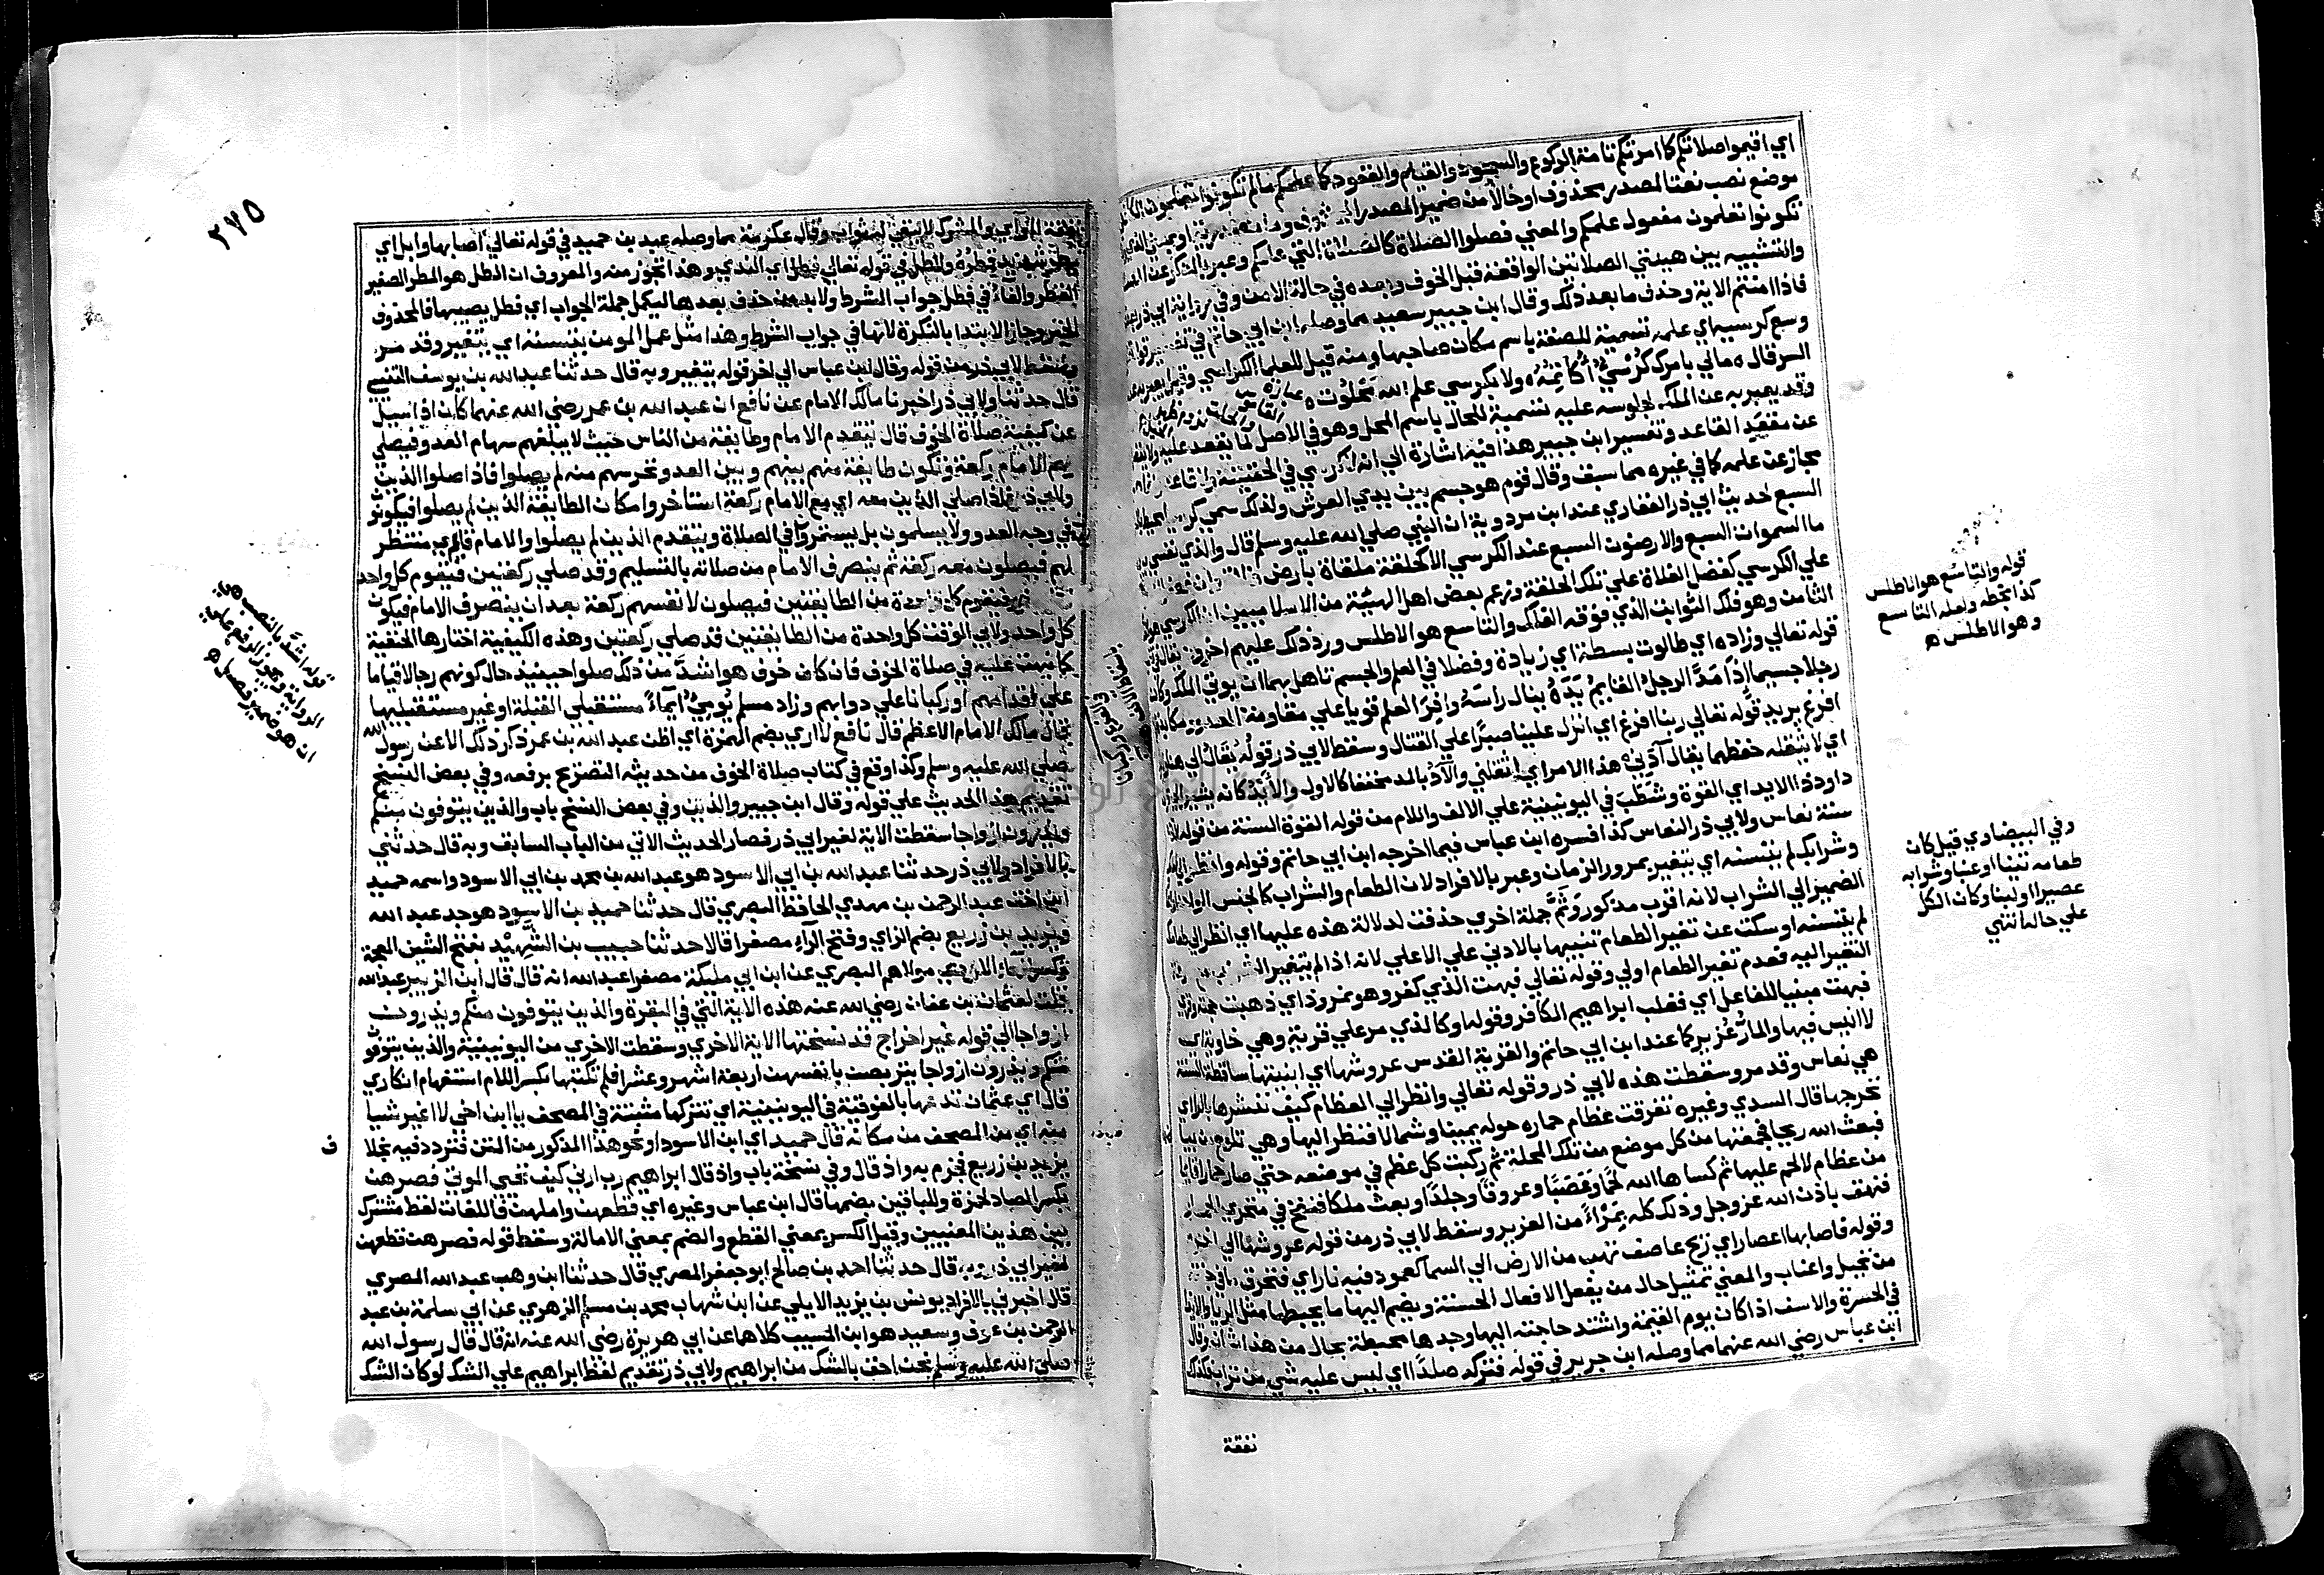 اي اقيموا صلاتكم كما امرتكم تامة الركوع والسجود والقيام والقعود كما علمكم ما لم تكونوا تعلمون
موضع نصب نعتا لمصدر محذوف او حالا من ضمير المصدر المحذوف وما
تكونوا تعلمون مفعول علمكم والمعني فصلوا الصلاة كالصلاة التي علمكم وعبر بالذكر عن
والتشبيه بين هيئتي الصلاتين الواقعة قبل الخوف وبعده في حالة الامن وفي رواية ابي ذر
فاذا امنتم الاية وحذف ما بعد ذلك وقال ابن جبير سعيد مما وصله ابن ابي حاتم في تفسير
وسع كرسيه اي علمه تسمية للصفة باسم مكان صاحبها ومنه قيل للعلما الكراسي وقيل يعبر به عن
السر قال ه مالي بامرك كرسي اكاتمه ولا بكرسي علم الله مخلوق ه
وقد يعبر به عن الملك لجلوسه عليه تسمية للحال باسم المحل وهو في الاصل لما يقعد عليه ولا
عن مقعد القاعد وتفسير ابن جبير هذا فيه اشارة الي انه لا كرسي في الحقيقة ولا قاعد
مجاز عن علمه كما في غيره مما سبق وقال قوم هو جسم بين يدي العرش ولذلك سمي كرسيا
السبع لحديث ابي ذر الغفاري عند ابن مردوية ان النبي صلي الله عليه وسلم قال والذي نفسي
ما السموات السبع والارضون السبع عند الكرسي الا كحلقة ملقاة بارض فلاة وان فضل
علي الكرسي كفضل الفلاة علي تلك الحلقة وزعم بعض اهل الهيئة من الاسلاميين ان الكرسي هو
الثامن وهو فلك الثوابت الذي فوقه الفلك والتاسع هو الاطلس ورد ذلك عليهم اخرون
قوله تعالي وزاده اي طالوت بسطة اي زيادة وفضلا في العلم والجسم تاهل بهما ان يوتي الملك وكان
رجلا جسيما اذا مد الرجل القايم يده ينال راسه وافر العلم قويا علي مقاومة العدو
افرغ يريد قوله تعالي ربنا افرغ اي انزل علينا صبرا علي القتال وسقط لابي ذر قوله يقال
اي لا يثقله حفظهما يقال آدني هذا الامر اي اثقلني والآد بالمد مخففا كالاول والايد كانه يشير
داود ذا الايد اي القوة وشطب في اليونينية علي الالف واللام من قوله القوة السنة من قوله
سنة نعاس ولابي ذر النعاس كذا فسره ابن عباس فيما اخرجه ابن ابي حاتم وقوله وانظر الي
وشرابك لم يتسنه اي يتغير بمرور الزمان وعبر بالافراد لان الطعام والشراب كالجنس الواحد
الضمير الي الشراب لانه اقرب مذكور وثم جملة اخري حذفت لدلالة هذه عليها اي انظر الي
لم يتسنه او سكت عن تغير الطعام تنبيها بالادني علي الاعلي لانه اذا لم يتغير الشراب مع
التغير اليه فعدم تغير الطعام اولي وقوله تعالي فبهت الذي كفر وهو نمروذ اي ذهبت حجته
فبهت مبنيا للفاعل اي فغلب ابراهيم الكافر وقوله او كالذي مر علي قرية وهي خاوية اي
لا انيس فيها والمار عزير كما عند ابن ابي حاتم والقرية القدس عروشها اي ابنيتها ساقطة السنة
هي نعاس وقد مر وسقطت هذه لابي ذر وقوله تعالي وانظر الي العظام كيف ننشرها بالراي
نخرجها قال السدي وغيره تفرقت عظام حماره حوله يمينا وشمالا فنظر اليها وهي تلوح
فبعث الله ريحا فجمعتها من كل موضع من تلك المحلة ثم ركبت كل عظم في موضعه حتي صار حمارا قايما
من عظام لا لحم عليها ثم كساها الله لحما وعصبا وعروقا وجلدا وبعث ملكا فنفخ في منخري الحمار
فنهق باذن الله عز وجل وذلك كله بمرأى من العزير وسقط لابي ذر من قوله عروشها الي اخره
وقوله فاصابها اعصار اي ريح عاصف تهب من الارض الي السما كعمود فيه نار اي فتحرق ما في
من نخيل واعناب والمعني تمثيل حال من يفعل الافعال الحسنة ويضم اليها ما يحبطها مثل الريا
في الحسرة والاسف اذا كان يوم القيمة واشتد حاجته اليها وجدها محبطة بحال من هذا شانه وقال
ابن عباس رضي الله عنهما مما وصله ابن جرير في قوله فتركه صلدا اي ليس عليه شي من تراب فكذلك
نفقة
قوله والتاسع هو اناطلس
كذا بخطه ولعله التاسع
وهو الاطلس ه
وفي البيضاوي قيل كان
طعامه تينا او عنبا وشرابه
عصيرا او لبنا وكان الكل
علي حاله انتهي
٢٧٥
نفقة المرآي والمشرك لا يبقي له ثواب وقال عكرمة مما وصله عبد بن حميد في قوله تعالي اصابها وابل اي
مطر شديد قطره والطل في قوله تعالي فطل اي الندي وهذا تجوز منه والمعروف ان الطل هو المطر الصغير
القطر والفاء في فطل جواب الشرط ولا بد من حذف بعدها ليكمل جملة الجواب اي فطل يصيبها فالمحذوف
الخبر وجاز الابتدا بالنكرة لانها في جواب الشرط وهذا مثل عمل المومن يتسنه اي يتغير وقد مر
وسقط لابي ذر من قوله وقال ابن عباس الي اخر قوله يتغير وبه قال حدثنا عبد الله بن يوسف التنيسي
قال حدثنا ولابي ذر اخبرنا مالك الامام عن نافع ان عبد الله بن عمر رضي الله عنهما كان اذا سيل
عن كيفية صلاة الخوف قال يتقدم الامام وطايفة من الناس حيث لا يبلغهم سهام العدو فيصلي
بهم الامام ركعة وتكون طايفة منهم بينهم وبين العدو تحرسهم منه لم يصلوا فاذا صلوا الذين
ولابي ذر فاذا صلي الذين معه اي مع الامام ركعة استاخروا مكان الطايفة الذين لم يصلوا فيكونون
في وجه العدو ولا يسلمون بل يستمروا في الصلاة ويتقدم الذين لم يصلوا والامام قاري منتظر
لهم فيصلون معه ركعة ثم ينصرف الامام من صلاته بالتسليم وقد صلي ركعتين فيقوم كل واحد
فتقوم كل واحدة من الطايفتين فيصلون لانفسهم ركعة بعد ان ينصرف الامام فيكون
كل واحد ولابي الوقت كل واحدة من الطايفتين قد صلي ركعتين وهذه الكيفية اختارها الحنفية
كما نبهت عليه في صلاة الخوف فان كان خوف هو اشد من ذلك صلوا حينيذ حال كونهم رجالا قياما
علي اقدامهم او ركبانا علي دوابهم وزاد مسلم يومي ايماء مستقبلي القبلة او غير مستقبليها
قال مالك الامام الاعظم قال نافع لا اري بضم الهمزة اي اظن عبد الله بن عمر ذكر ذلك الا عن رسول الله
صلي الله عليه وسلم وكذا وقع في كتاب صلاة الخوف من حديثه التصريح برفعه وفي بعض النسخ
تقديم هذا الحديث علي قوله وقال ابن جبير والذين وفي بعض النسخ باب والذين يتوفون منكم
ويذرون ازواجا سقطت الاية لغير ابي ذر فصار الحديث الاتي من الباب السابق وبه قال حدثني
بالافراد ولابي ذر حدثنا عبد الله بن ابي الاسود هو عبد الله بن محمد بن ابي الاسود واسمه حميد
ابن اخت عبد الرحمن بن مهدي الحافظ البصري قال حدثنا حميد بن الاسود هو جد عبد الله
ويزيد بن زريع بضم الزاي وفتح الراء مصغرا قالا حدثنا حبيب بن الشهيد بفتح الشين المعجمة
وكسر الهاء الازدي مولاهم البصري عن ابن ابي مليكة مصغرا عبد الله انه قال قال ابن الزبير عبد الله
قلت لعثمان بن عفان رضي الله عنه هذه الاية التي في البقرة والذين يتوفون منكم ويذرون
ازواجا الي قوله غير اخراج قد نسختها الاية الاخري وسقطت الاخري من اليونينية والذين يتوفون
منكم ويذرون ازواجا يتربصن بانفسهن اربعة اشهر وعشرا فلم تكتبها بكسر اللام استفهام انكاري
قال اي عثمان تدعها بالفوقية في اليونينية اي تتركها مثبتة في المصحف يا ابن اخي لا اغير شييا
منه اي من المصحف من مكانه قال حميد اي ابن الاسود او نحو هذا المذكور من المتن فتردد فيه بخلا
ف
يزيد بن زريع فجزم به واذ قال وفي نسخة باب واذ قال ابراهيم رب ارني كيف تحيي الموتي فصرهن
بكسر الصاد لحمزة وللباقين بضمها قال ابن عباس وغيره اي قطعهن واملهن فاللغات لفظ مشترك
بين هذين المعنيين وقيل الكسر بمعني القطع والضم بمعني الامالة وسقط قوله فصرهن قطعهن
لغير ابي ذر وبه قال حدثنا احمد بن صالح ابو جعفر المصري قال حدثنا ابن وهب عبد الله المصري
قال اخبرني بالافراد يونس بن يزيد الايلي عن ابن شهاب محمد بن مسلم الزهري عن ابي سلمة بن عبد
الرحمن بن عوف وسعيد هو ابن المسيب كلاهما عن ابي هريرة رضي الله عنه انه قال قال رسول الله
صلي الله عليه وسلم نحن احق بالشك من ابراهيم ولابي ذر تقديم لفظ ابراهيم علي الشك لو كان الشك
قوله اشد بالنصب هي
الرواية ويجوز الرفع علي
ان هو ضمير فصل ه